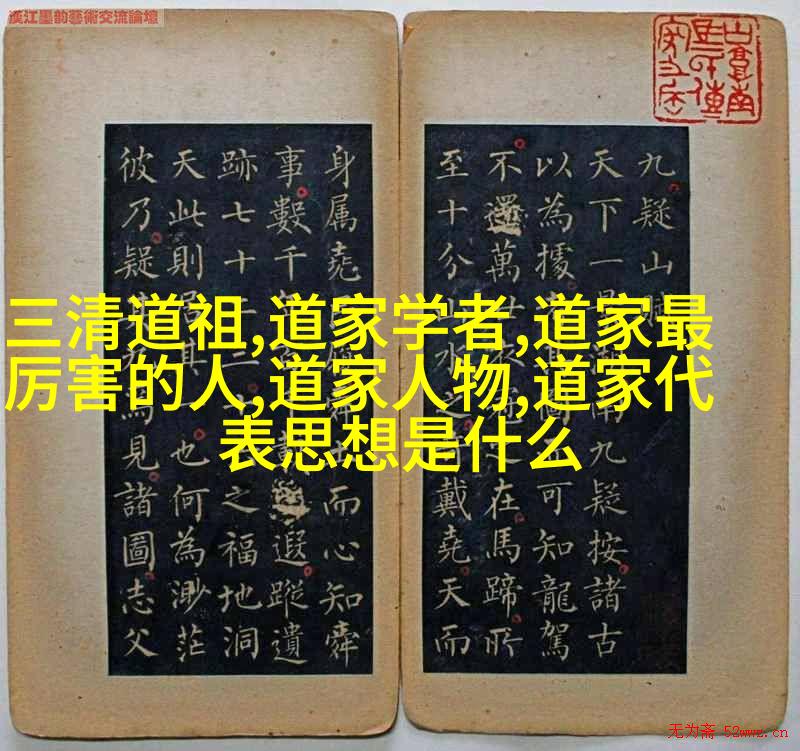 漢江墨韵藝術交流論壇
三清道祖,道家学者,道家最
厉害的人,道家人物,道家代
表思想是什么
九疑山
天下一南九疑按諸古
以為據可知龍駕
不還萬在馬蹄所
至十分水之戴堯天而
身属堯而心知舜
事數千遐蹤遺
跡七十二之福地洞
天此則居其也何為渺茫
彼乃疑焉見諸圖志父
无为斋 52wwz.cn